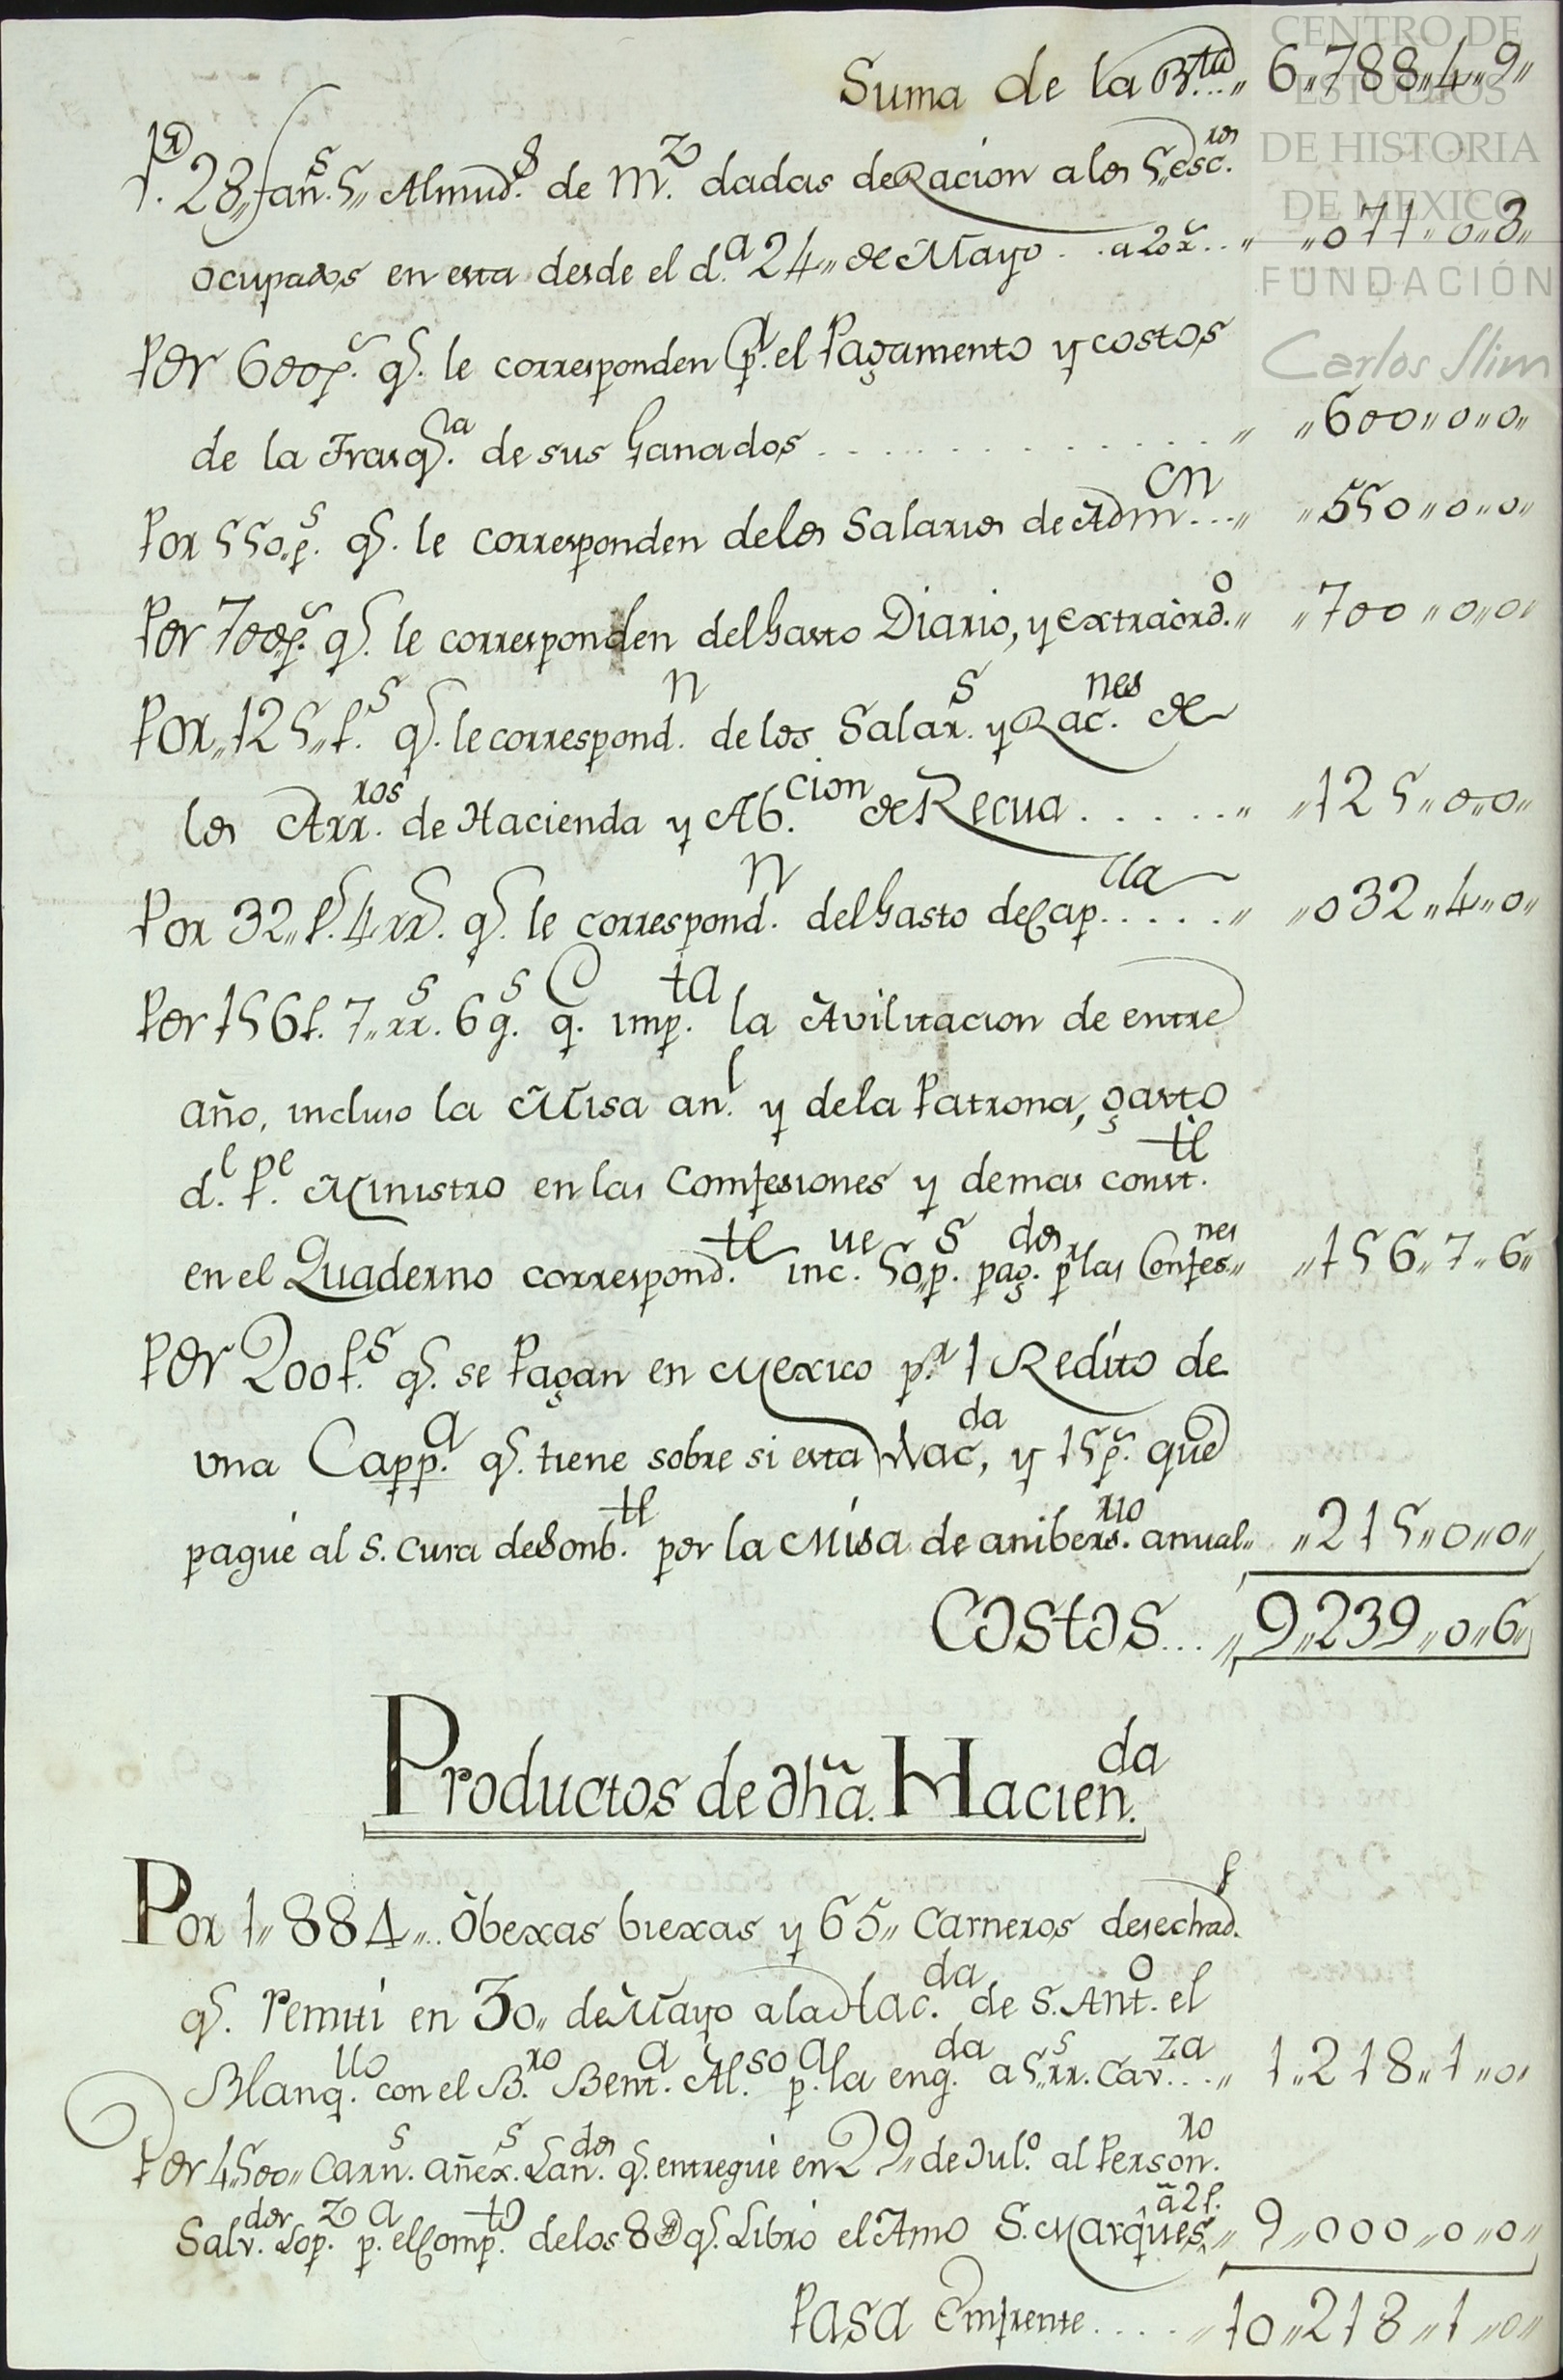 Suma de la B.ta.. 6,,788,,4,,9,,
Pr. 28,, fan.s 5,, Almud.s de M.z dadas de Racion a los 5,, esc.ros
ocupados en esta desde el d.a 24,, de Mayo .. a 20 r.s .. ,, ,,071,,0,,3,,
Por 600 p.s q.e le corresponden p.a el Pagamento y costos
de la Trasq.la de sus Ganados . . . . . . . . . . . . ,, ,,600,,0,,0,,
Por 550 p.s q.e le corresponden de los Salarios de Adm.cn...,, ,,550,,0,,0,,
Por 700 p.s q.e le corresponden del Gasto Diario, y extraord.o ,, ,,700,,0,,0,,
Por,, 125,, p.s q.e le correspond.n de los Salar.s y Rac.nes de
los Arr.ros de Hacienda y Ab.cion de Recua . . . . . ,, ,,125,,0,,0,,
Por 32,, p.s 4 rr.s q.e le correspond.n del Gasto de Cap.lla . . . . ,, ,,032,,4,,0,,
Por 156 p. 7,, rr.s 6 g.s q.e imp.ta la Avilitacion de entre
año, incluso la Misa an.l y de la Patrona, gasto
d.l P.e Ministro en las Comfesiones y demas const.te
en el Quaderno correspond.te inc.ue 50,, p.s pag.dos p.r las Confes.nes ,, ,,156,,7,,6,,
Por 200 p.s q.e se Pagan en Mexico p.r 1 Redito de
una Capp.a q.e tiene sobre si esta Hac.da, y 15 p.s que
pagué al S. Cura de Sonb.te por la Misa de anibers.rio anual,, ,,215,,0,,0,,
Costos... ,, 9,,239,,0,,6,,
Productos de dha. Hacien.da
Por 1,,884,,.. Obexas biexas y 65,, Carneros desechad.s
q.e Remiti en 30,, de Mayo a la Hac.da de S. Ant.o el
Blanq.llo con el B.ro Bent.a Al.so p.a la eng.da a 5,, rr.s Cav.za ..,, 1,,218,,1,,0,
Por 4,,500,, Carn.s añex.s Lan.dos q.e entregué en 29,, de Jul.o al Person.ro
Salv.dor Lop.z p.a el Comp.to de los 8 @ q.e Libró el Amo S. Marques, a 2 p. ,, 9,,000,,0,,0,,
Pasa Emfrente . . . . ,, 10,,218,,1,,0,,
CENTRO DE
ESTUDIOS
DE HISTORIA
DE MEXICO
FUNDACIÓN
Carlos Slim